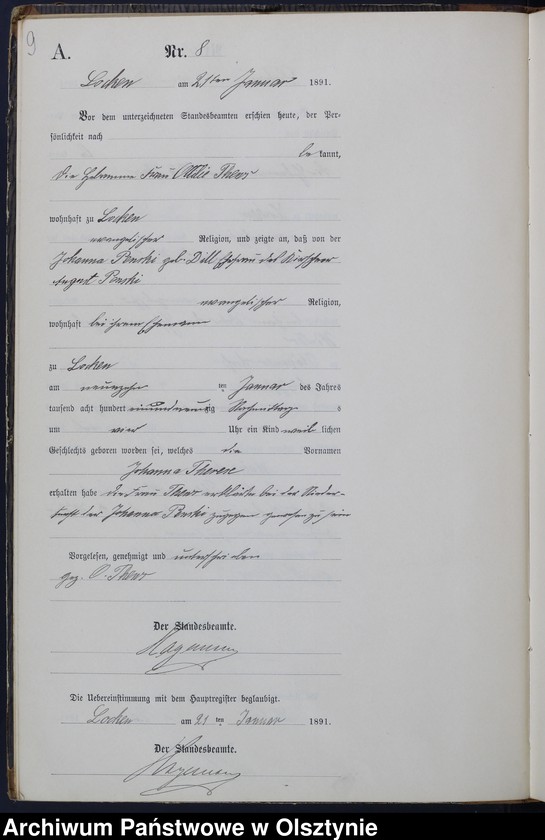 9
A.
Nr. 8
Locken am 21ten Januar 1891.
Vor dem unterzeichneten Standesbeamten erschien heute, der Per-
sönlichkeit nach
be kannt,
Die Hebamme Frau Ottilie
wohnhaft zu Locken
evangelischer Religion, und zeigte an, daß von der
Johanna geb. Dill Ehefrau des
August
evangelischer Religion,
wohnhaft bei ihrem Ehemann
zu Locken
am neunzehn ten Januar des Jahres
tausend acht hundert einundneunzig Nachmittag s
um vier Uhr ein Kind weib lichen
Geschlechts geboren worden sei, welches die Vornamen
Johanna Therese
erhalten habe die Frau erklärte bei der Nieder-
kunft der Johanna zugegen gewesen zu sein
Vorgelesen, genehmigt und unterschrieben
gez. O.
Der Standesbeamte.
Die Uebereinstimmung mit dem Hauptregister beglaubigt.
Locken am 21 ten Januar 1891.
Der Standesbeamte.
Archiwum Państwowe w Olsztynie